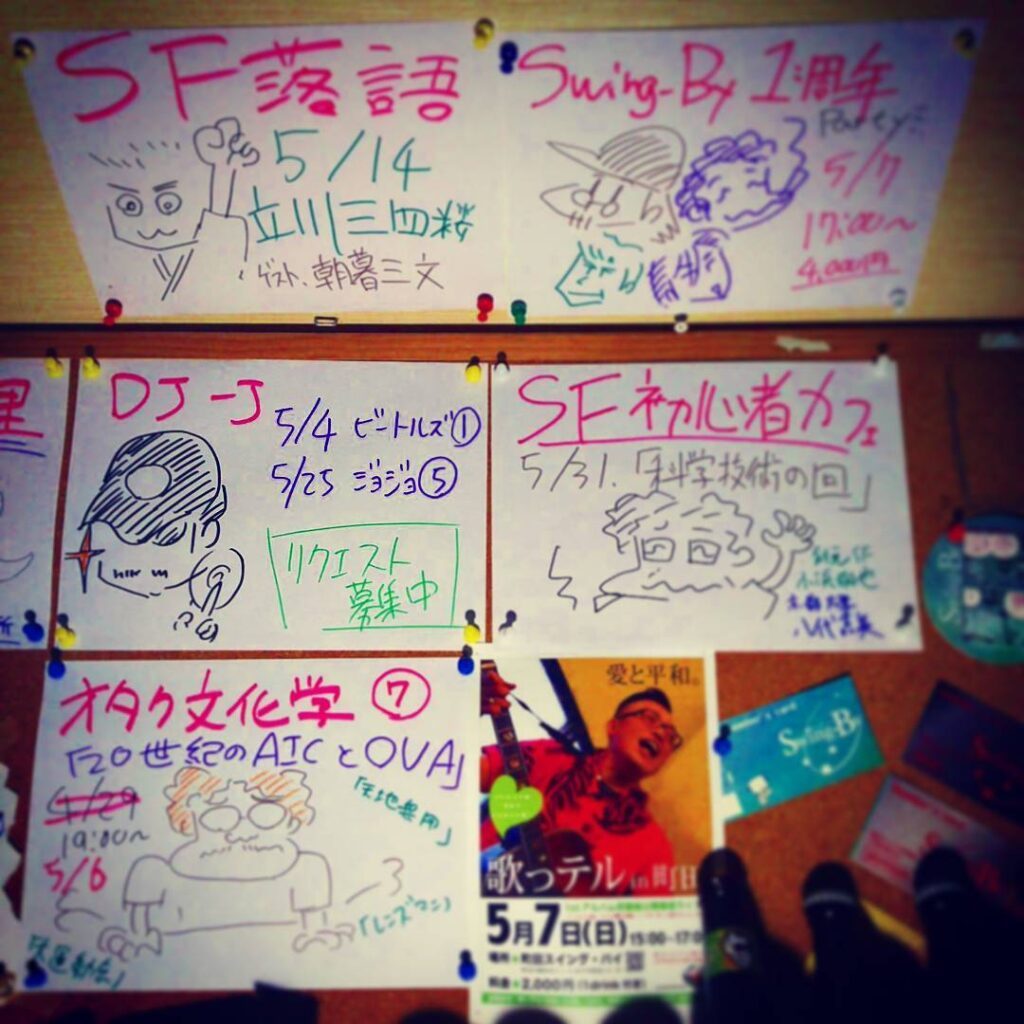 SF落語
5/14
立川三四楼
ゲスト、朝暮三文
Swing-By 1周年
Party!!
5/7
17:00~
4,000円
DJ-J
5/4 ビートルズ①
5/25 ジョジョ⑤
リクエスト
募集中
SF初心者カフェ
5/31.「科学技術の回」
オタク文化学 ⑦
「20世紀のAICとOVA」
4/29
19:00~
5/6
「天地無用」
「レンズマン」
大運動会」
愛と平和。
歌っテル in 町田
5月7日(日) 15:00-17:0
場所●町田スイング・バイ
料金●2,000円(1drink 付き)
Swing-By